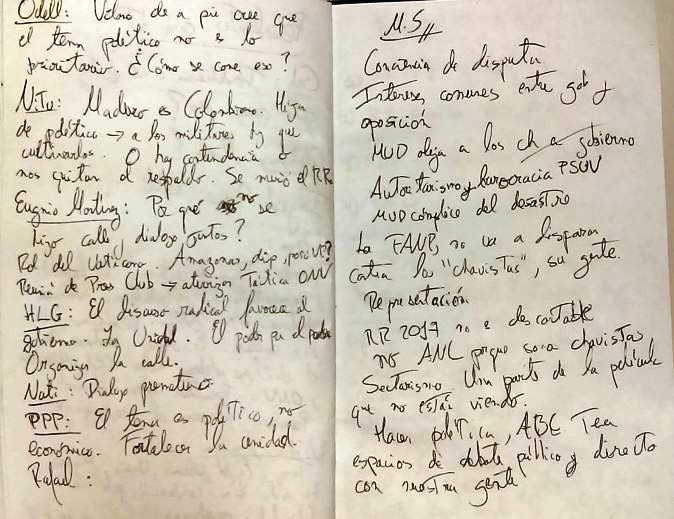 Odell: Vdno de a pie cree que
el tema político no es lo
prioritario. ¿Cómo se come eso?
Nitu: Maduro es Colombiano. Hija
de político → a los militares hy que
cultivarlos. O hay contundencia o
nos quitan el respaldo. Se murió el RR
Eugnio Martínez: Por qué no se
hizo calle, dialogo, juntos?
Rol del Vaticano. Amazonas, dip,
de Press Club → Táctica
HLG: El discurso radical favorece al
gobierno. La Unidad. El poder por el poder
Organizar la calle.
Nati: Dialogo prematuro.
PPP: El tema es político, no
económico. Fortalecer la unidad.
Rafael:
M.S
Conciencia de disputa
Intereses comunes entre gob y
oposición
MUD aleja a los ch a gobierno
Autoritarismo y burocracia PSUV
MUD cómplice del desastre
La FANB, no va a disparar
contra los "chavistas", su gente.
Representación
RR 2017 no e descartable
no ANC porque saca chavistas
Sectarismo Una parte de la película
que no están viendo.
Hacer política, ABC Tener
espacios de debate público y directo
con nuestra gente